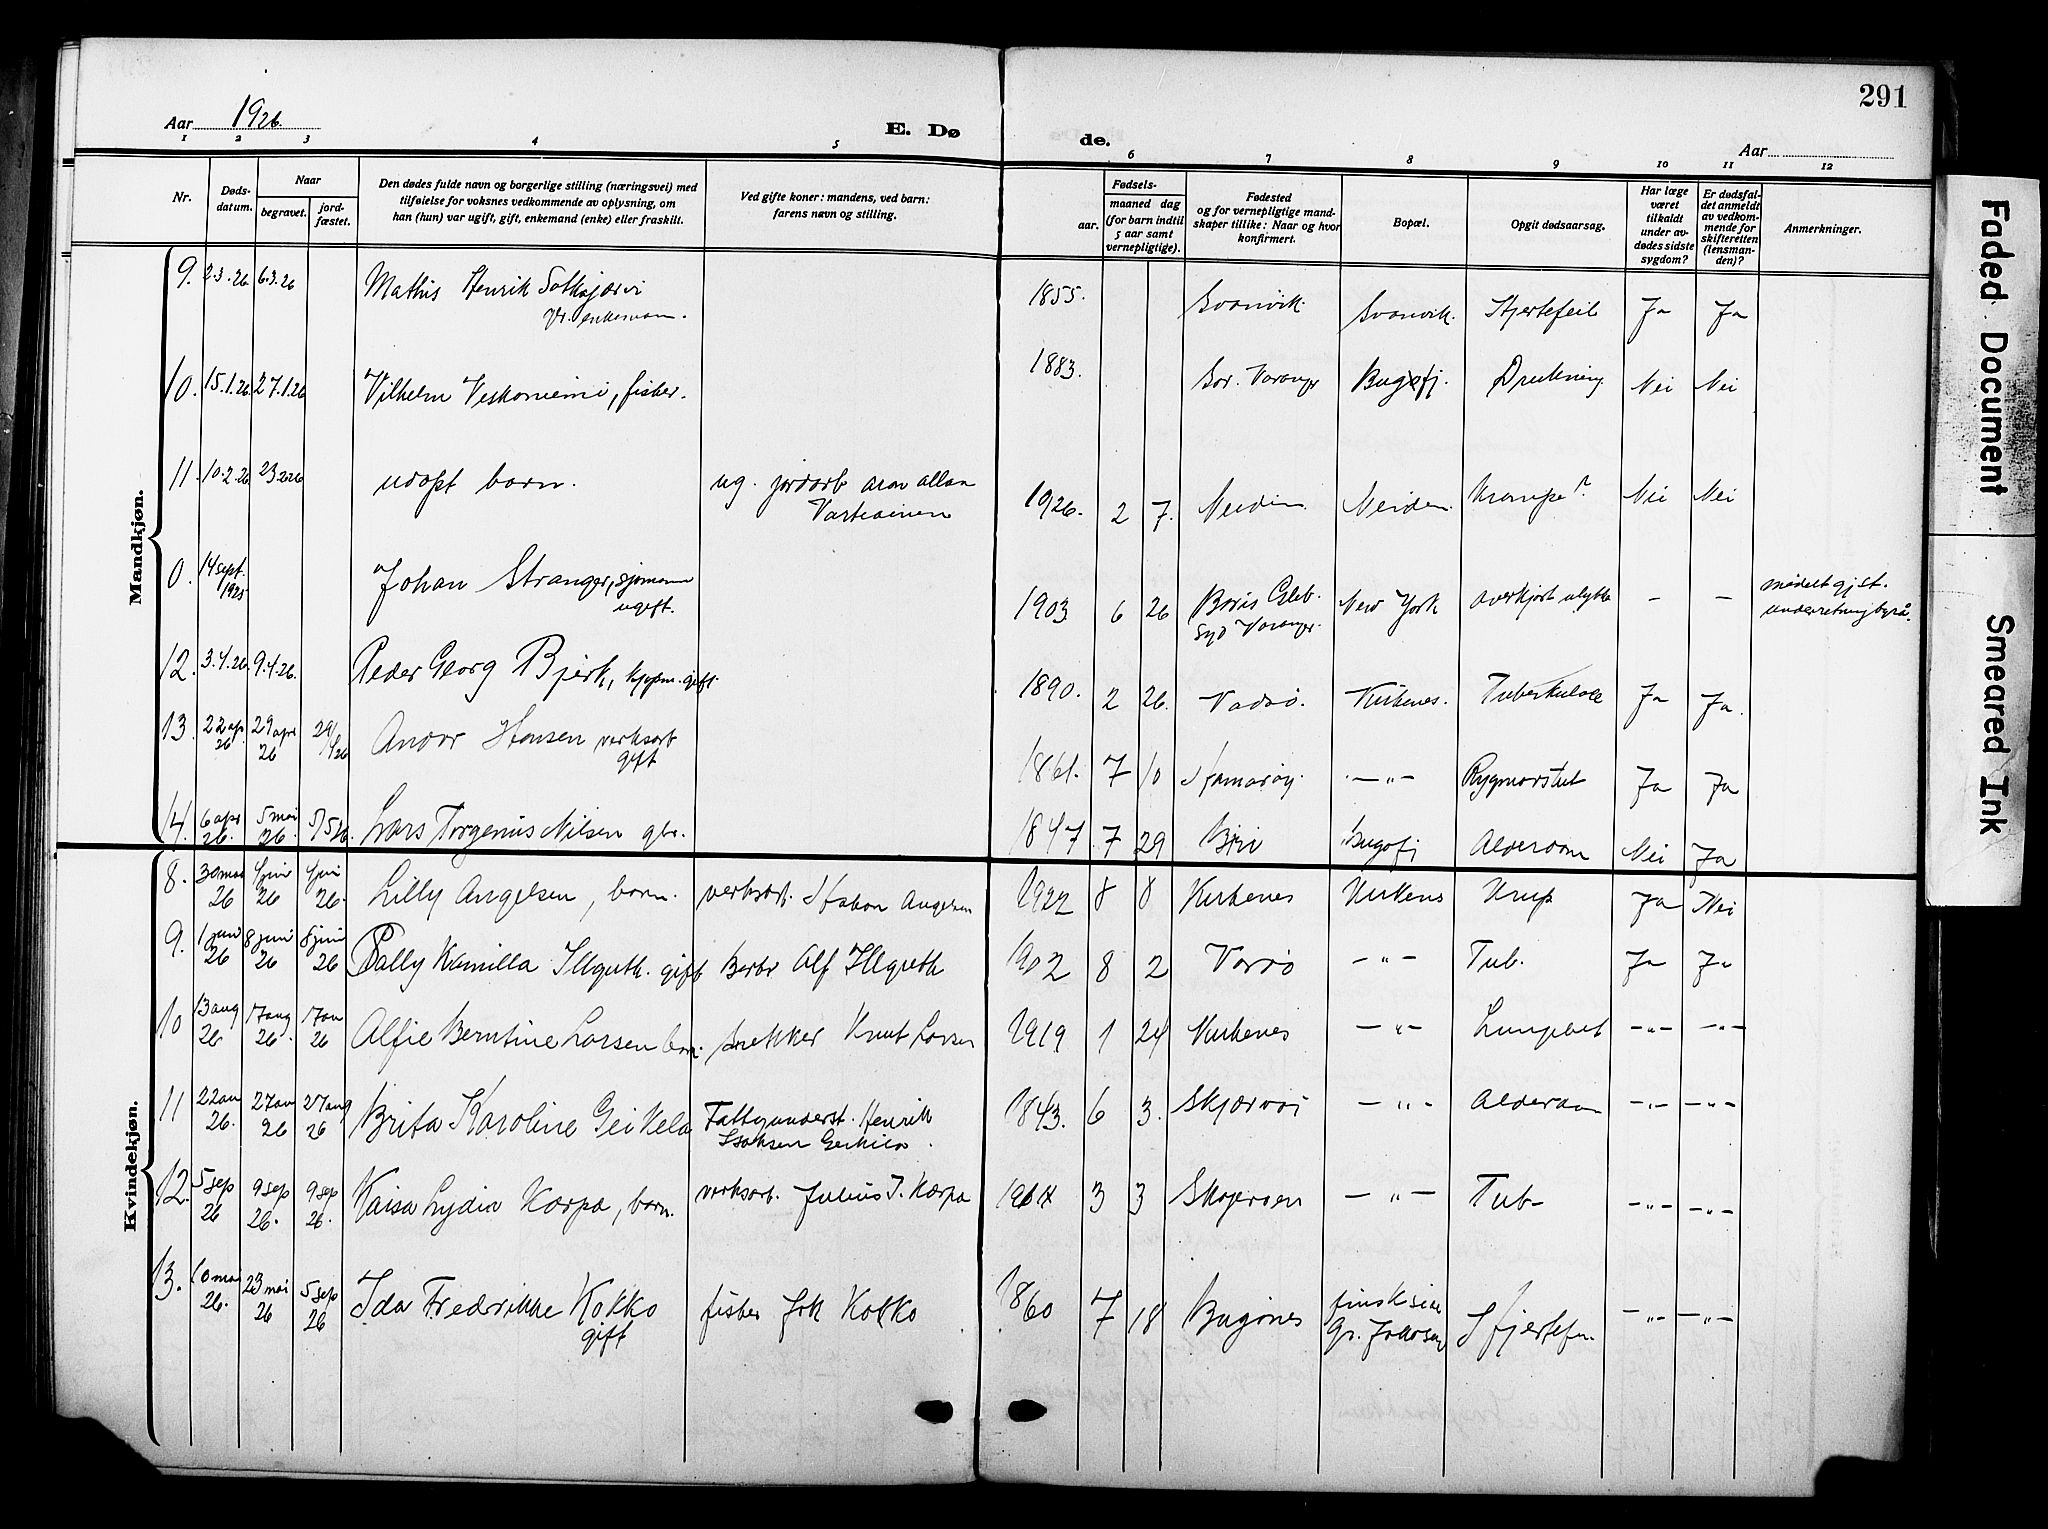 291
Aar 1926.
E. Dø
de.
Aar
1 2 3 4 5 6 7 8 9 10 11 12
Nr.
Døds-
datum.
Naar
begravet.
jord-
fæstet.
Den dødes fulde navn og borgerlige stilling (næringsvei) med
tilføielse for voksnes vedkommende av oplysning, om
han (hun) var ugift, gift, enkemand (enke) eller fraskilt.
Ved gifte koner: mandens, ved barn:
farens navn og stilling.
Fødsels-
aar.
maaned dag
(for barn indtil
5 aar samt
vernepligtige).
Fødested
og for vernepligtige mand-
skaper tillike: Naar og hvor
konfirmert.
Bopæl.
Opgit dødsaarsag.
Har læge
været
tilkaldt
under av-
dødes sidste
sygdom?
Er dødsfal-
det anmeldt
av vedkom-
mende for
skifteretten
(lensman-
den)?
Anmerkninger.
Mandkjøn.
9. 2.3.26. 6.3.26 Mathis Henrik 1855. Svanvik Svanvik. Hjertefeil Ja Ja
enkemann.
10. 15.1.26. 27.1.26 Vilhelm Veskoniemi, fisker. 1883. Sør. Varanger Bugøfj. Drukning Nei Nei
11. 10.2.26 23.2.26 udøpt barn. ug. jordarb Aron Allan 1926. 2 7. Neiden Neiden Krampe? Nei Nei
Vartiainen
0. 14 sept. 1925 Johan Stranger, sjømann 1903 6 26 Boris Gleb. New York overkjørt ulykke — —
ugift. Syd Varanger.
12. 3.4.26. 9.4.26. Peder Georg Bjerk, kjøpm. gift. 1890. 2 26. Vadsø. Kirkenes. Tuberkulose Ja Ja.
13. 22 ap. 26 29 apr 26 29/4 26 Hansen verksarb 1861. 7 10 Hamarøy. —„— Rygmarstub Ja Ja
gift
14. 6 apr 26. 5 mai 26. 5/5 26. Lars Torgenius Nilsen gbr. 1847 7 29 Bugøfj Alderdom Nei Ja
Kvindekjøn.
8. 30 mai 26 4 juni 26 4 juni 26. Lilly Angelsen, barn. verksarb. Hakon Angelsen 1922 8 8 Kirkenes Kirkenes Krup Ja Nei
9. 1 juni 26 8 juni 26 8 juni 26 Pally Kamilla Illguth. gift Alf Illguth 1902 8 2 Vardø —„— Tub. Ja Ja
10 13 aug 26 17 aug 26. 17 au 26 Alfie Berntine Larsen barn. snekker Knut Larsen 1919 1 24 Kirkenes —„— Lungebet —„— —„—
11 22 au 26. 27 au 26 27 aug 26 Brita Karoline Geikela Fattigunderst. Henrik 1843. 6 3. Skjærvøi —„— Alderdom —„— —„—
Isaksen Geikila.
12. 5 sep 26 9 sep 26. 9 sep 26. Kaisa Lydia Karpa, barn. verksarb. Julius I. Karpa 3 3 —„— Tub- —„— —„—
13. 10 mai 26. 23 mai 26 5 sep 26 Ida Fredrikke Kokko fisker Kokko 1860 7 18 Bugønes —„— —„—
gift
Faded Document
Smeared Ink